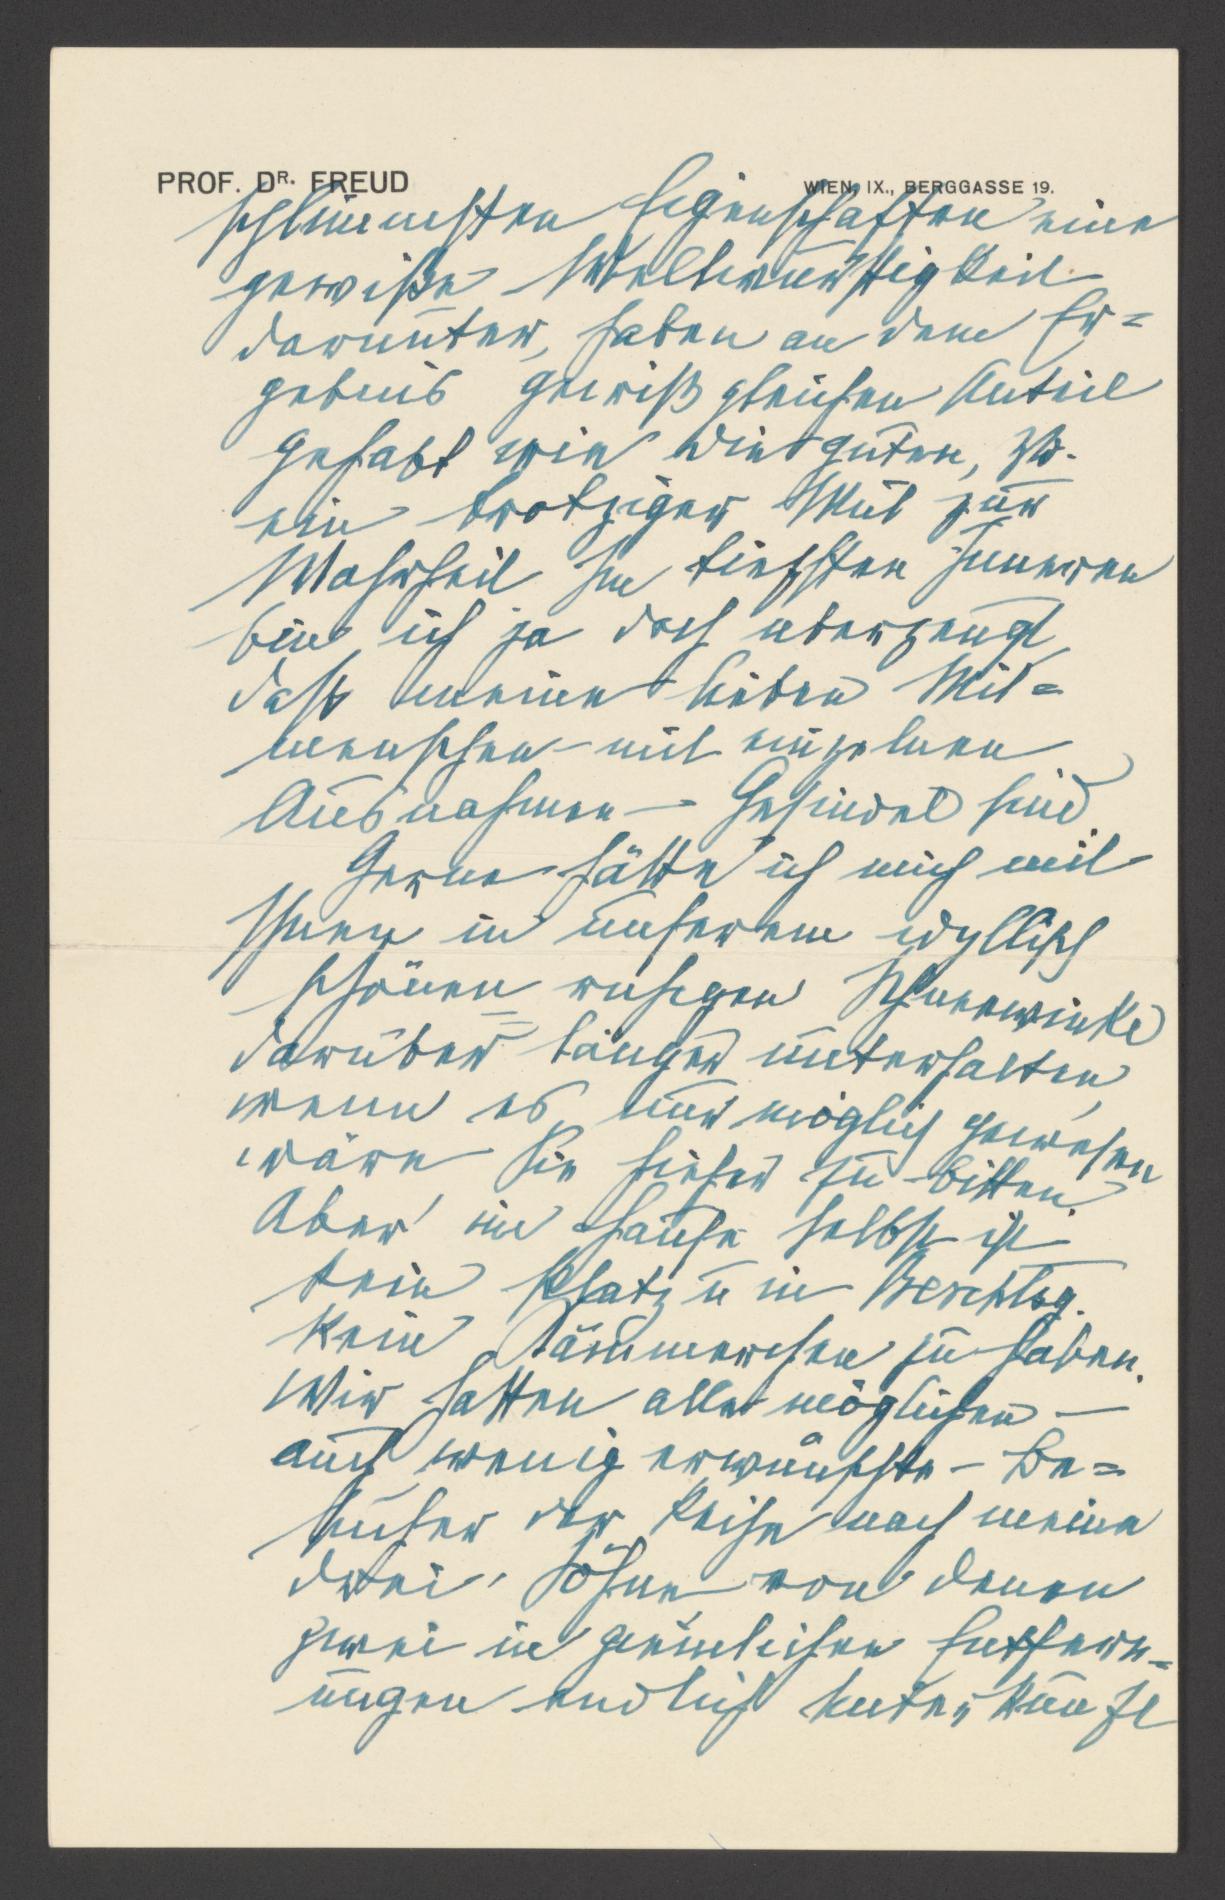 PROF. DR. FREUD
WIEN, IX., BERGGASSE 19.
schlimmsten Eigenschaften eine
gewiße Weltwurstigkeit
darunter, haben an dem Er=
gebnis gewiß gleichen Anteil
gehabt wie die guten, zB.
ein trotziger Mut zur
Wahrheit Im tiefsten Inneren
bin ich ja doch überzeugt
daß meine lieben Mit=
menschen – mit einzelnen
Ausnahmen – Gesindel sind
Gerne hätte ich mich mit
Ihnen in unserem idyllisch
schönen ruhigen Schneewinkel
darüber länger unterhalten,
wenn es nur möglich gewesen
wäre Sie hieher zu bitten.
Aber im Hause selbst ist
kein Platz u in Berchtsg.
kein Kämmerchen zu haben.
Wir hatten alle möglichen –
auch wenig erwünschte – Be=
sucher der Reihe nach meine
drei Söhne von denen
zwei in ziemlichen Entfern=
ungen endlich Unterkunft